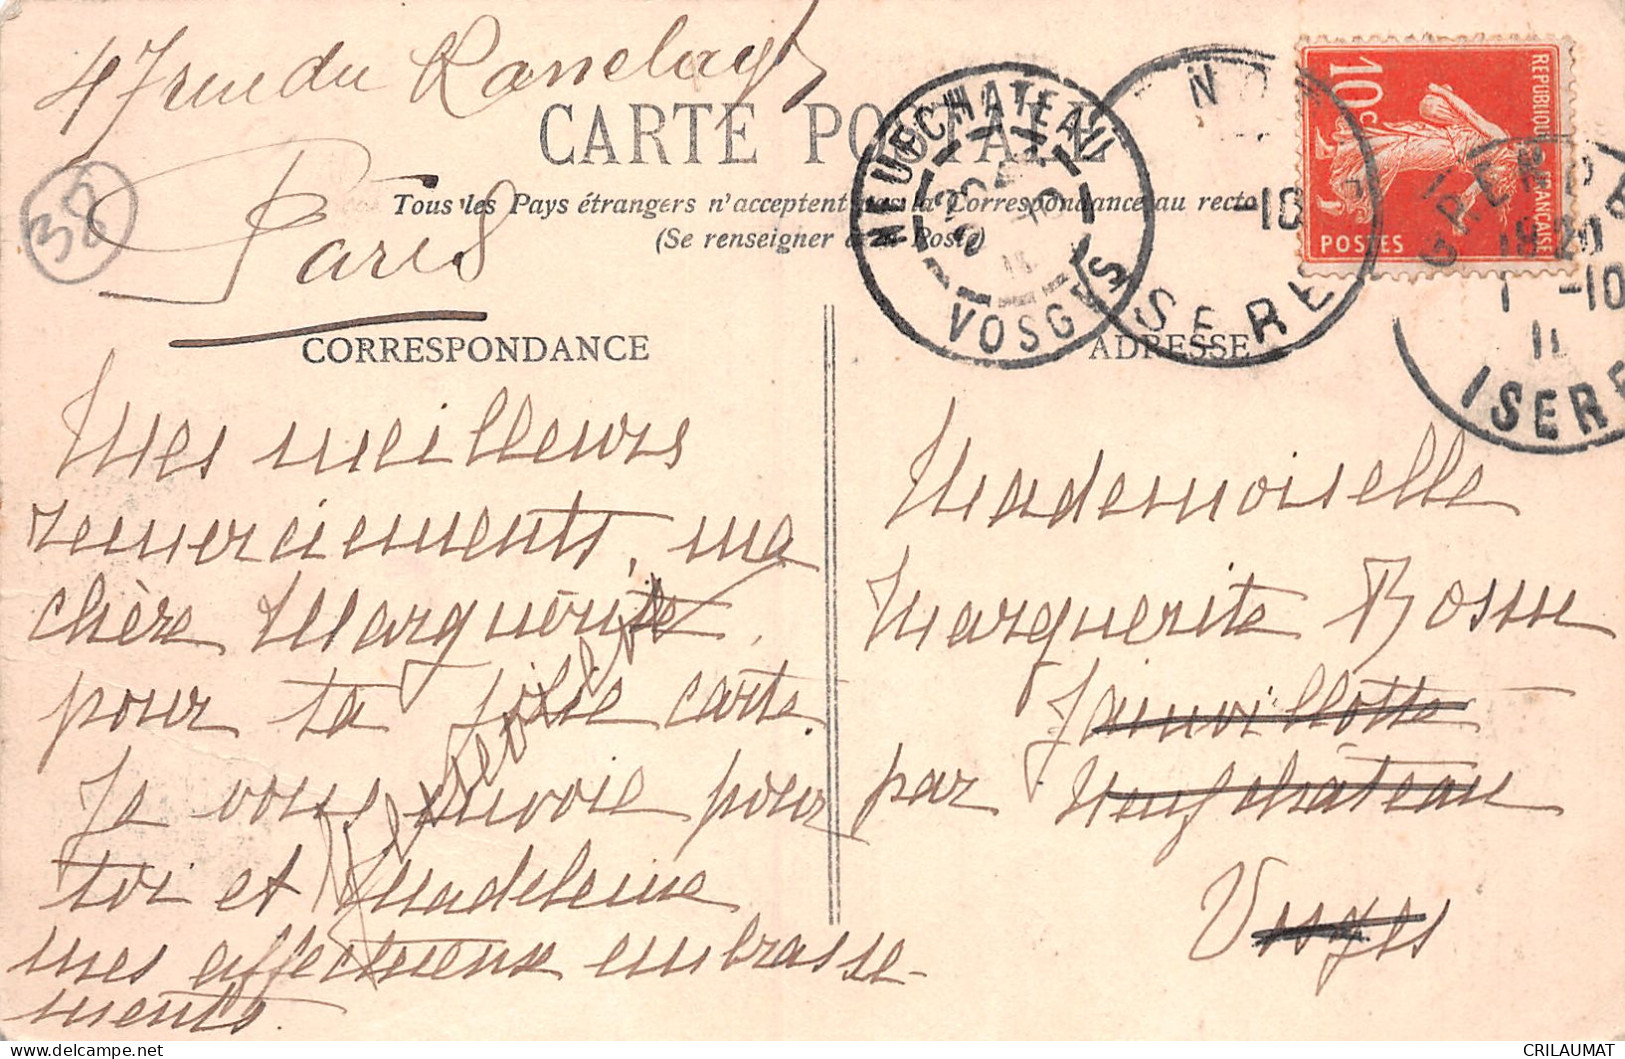 47 rue du Ranelagh
Paris
38
CARTE POSTALE
Tous les Pays étrangers n'acceptent pas la Correspondance au recto
(Se renseigner à la Poste)
NEUFCHATEAU
VOSGES
-10
ISERE
REPUBLIQUE FRANÇAISE
10c
POSTES
GRENOBLE
19 20
1 -10
11
ISERE
CORRESPONDANCE
Mes meilleurs
remerciements, ma
chère Marguerite,
pour ta jolie carte.
Je vous envoie pour
toi et Madeleine
mes affectueux embrasse-
ments.
ADRESSE
Mademoiselle
Marguerite
Jainvillotte
par Neufchâteau
Vosges
CRILAUMAT